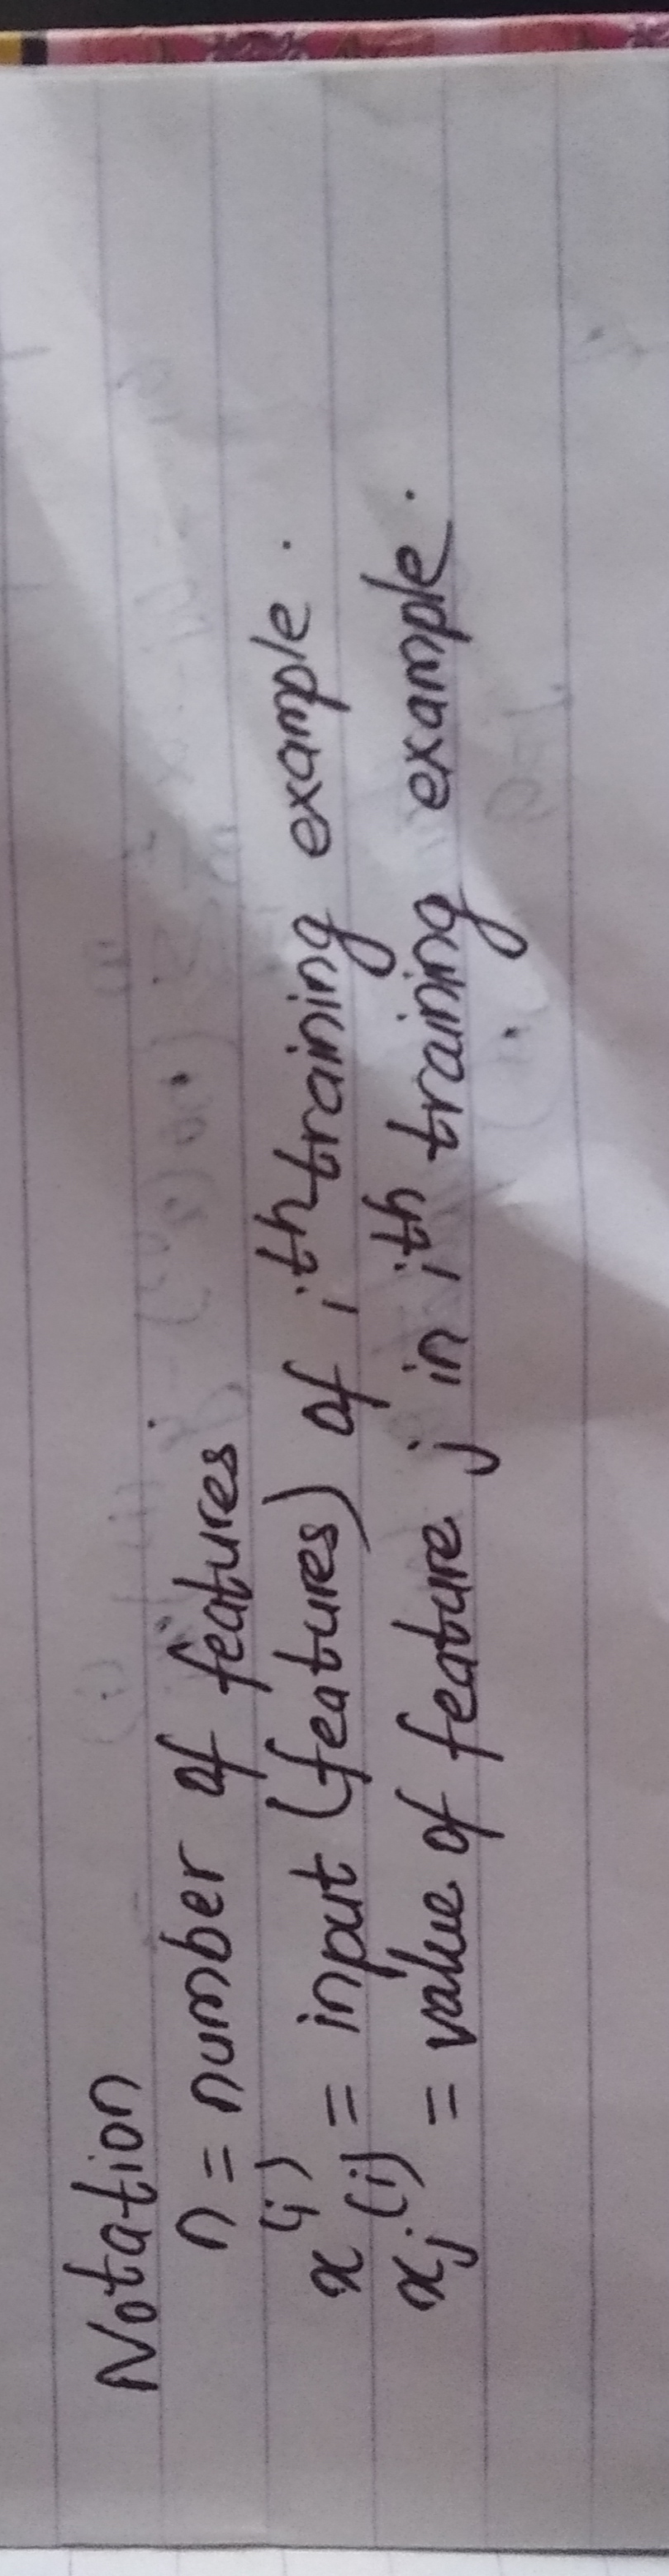 Notation
n = number of features
x^(i) = input (features) of i^th training example.
x_j^(i) = value of feature j in i^th training example.